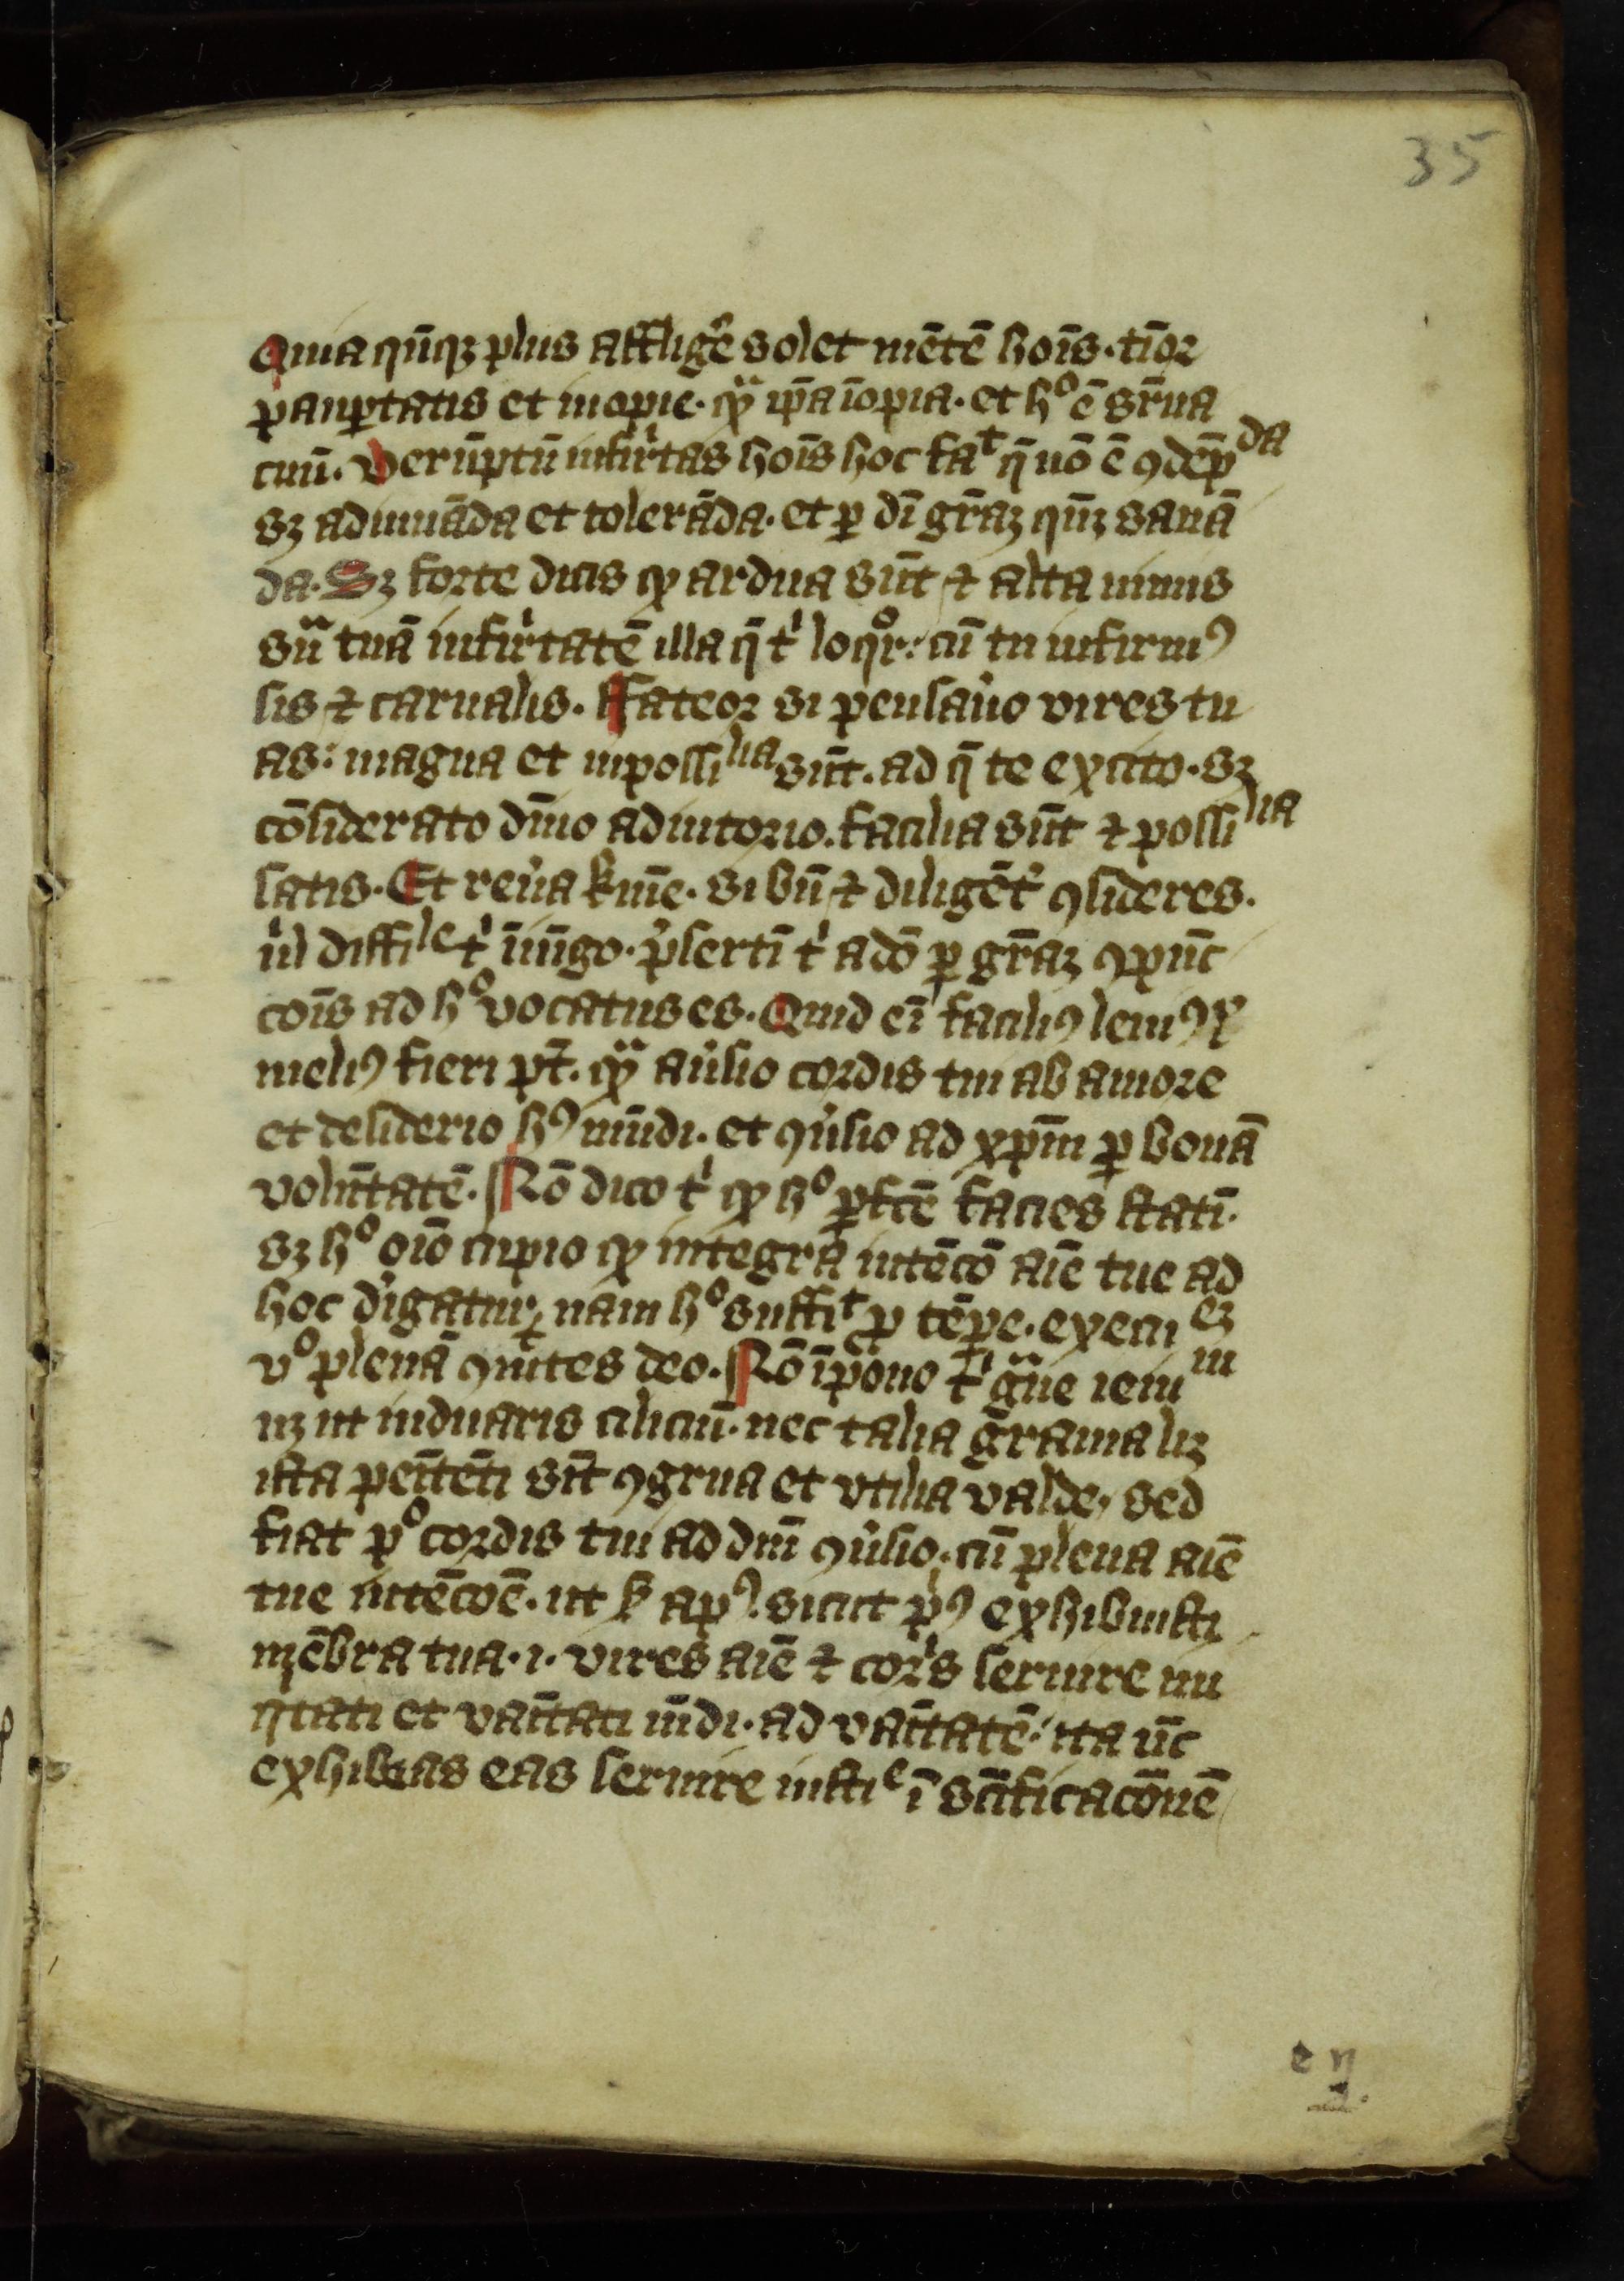 35
Quia qn̄qꝫ plus affligē solet mētē hoīs · tīor
paupꝑtatis et inopie · qͣ ip̄a īopia · et hͦ ē sr̄ua
cuū · Verūptū infirͥtas hoīs hoc fatͭ q̄ nō ē ꝯdēpda
sꝫ adiuuāda et tolerāda · et ꝑ dī grāꝫ qn̄ꝫ sanā
da · Sꝫ forte dicis ꝙ ardua sūt ⁊ alta nimis
suͣ tuā infirͥtatē illa q̄ tͥ loqͦr : cū tu infirmꝰ
sis ⁊ carnalis · ffateor si pensaůo vires tu
as : magna et inpossiͥlia sūt · ad q̄ te excito · sꝫ
cōsiderato dīno adiutorio · facilia sūt ⁊ possilia
satis · Et reůa kīme · si bn̄ ⁊ diligēt᷑ ꝯsideres ·
nͥl diffile tͥ iniūgo · p᷑sertī tͥ adō ꝑ grāꝫ ꝯpūc
cōis ad hͦ vocatus es · Quid eī faciliꝰ leniꝰ ⁊
meliꝰ fieri pt̄ · qͣ aůsio cordis tui ab amore
et desiderio hꝰ mūdi · et ꝯůsio ad xp̄m ꝑ bonā
volūtatē · Nō dico tͥ ꝙ hͦ ꝑfc̄e facies statī ·
sꝫ hͦ oīo cupio ꝙ integra intēcō aīe tue ad
hoc dͥgatur nam hͦ suffitͭ ꝓ tēpe · ex eciez
vͦ plenā ꝯuͥtes deo · Nō īpono tͥ gͣue ieiu
nꝫ ut induaris ciliciū · nec talia grāuia lꝫ
ista penitēti sīt ꝯgrua et vtilia valde · sed
fiat pͦ cordis tui ad dm̄ ꝯůsio · cū plena aīe
tue intēcōē · ut ẜ apꝰ · sicut pͥꝰ exhibuisti
mēbra tua · i · vires aīe ⁊ corͥs seruire ini
qͥtati et vanītati mūdi · ad vanītatē : ita nūc
exhibeas eas seruire iustiͤ ī sc̄ificacōnē